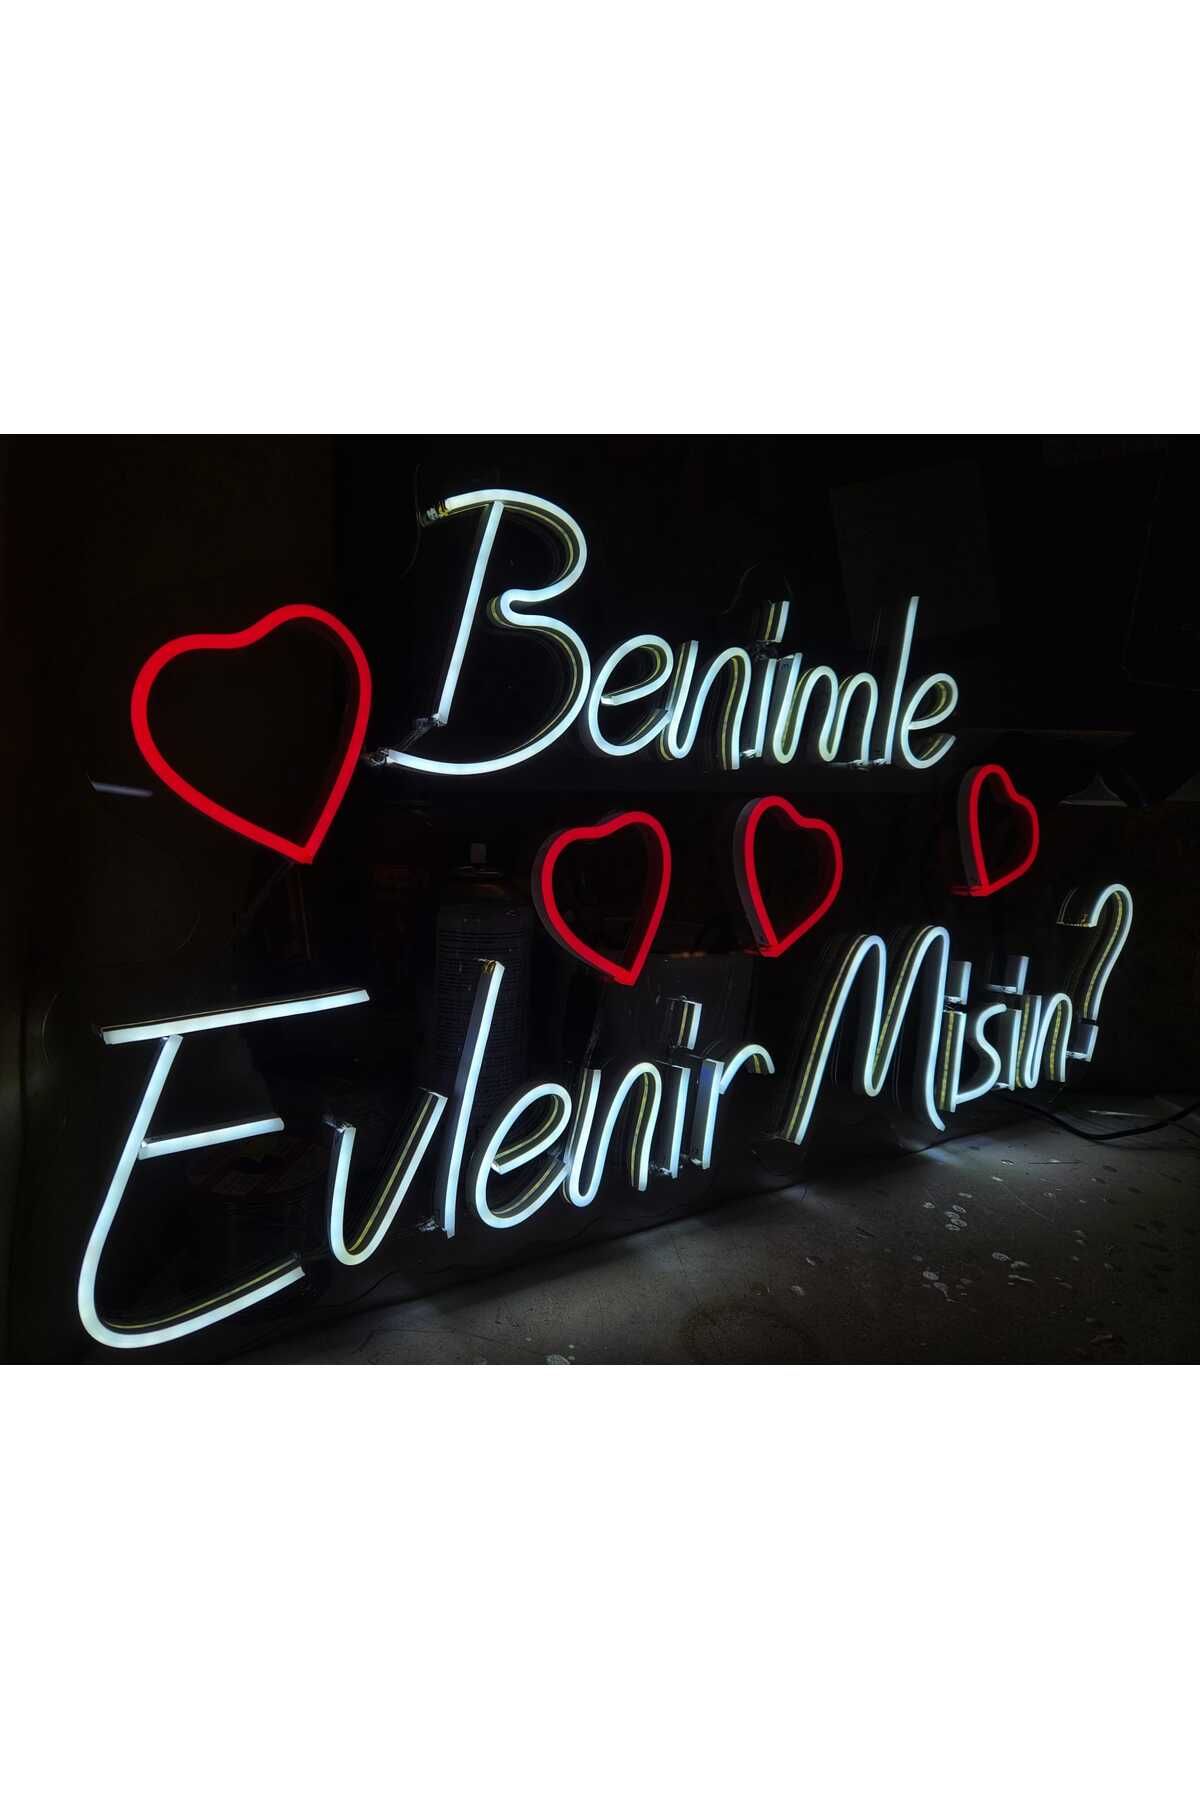 Benimle
Evlenir Misin?